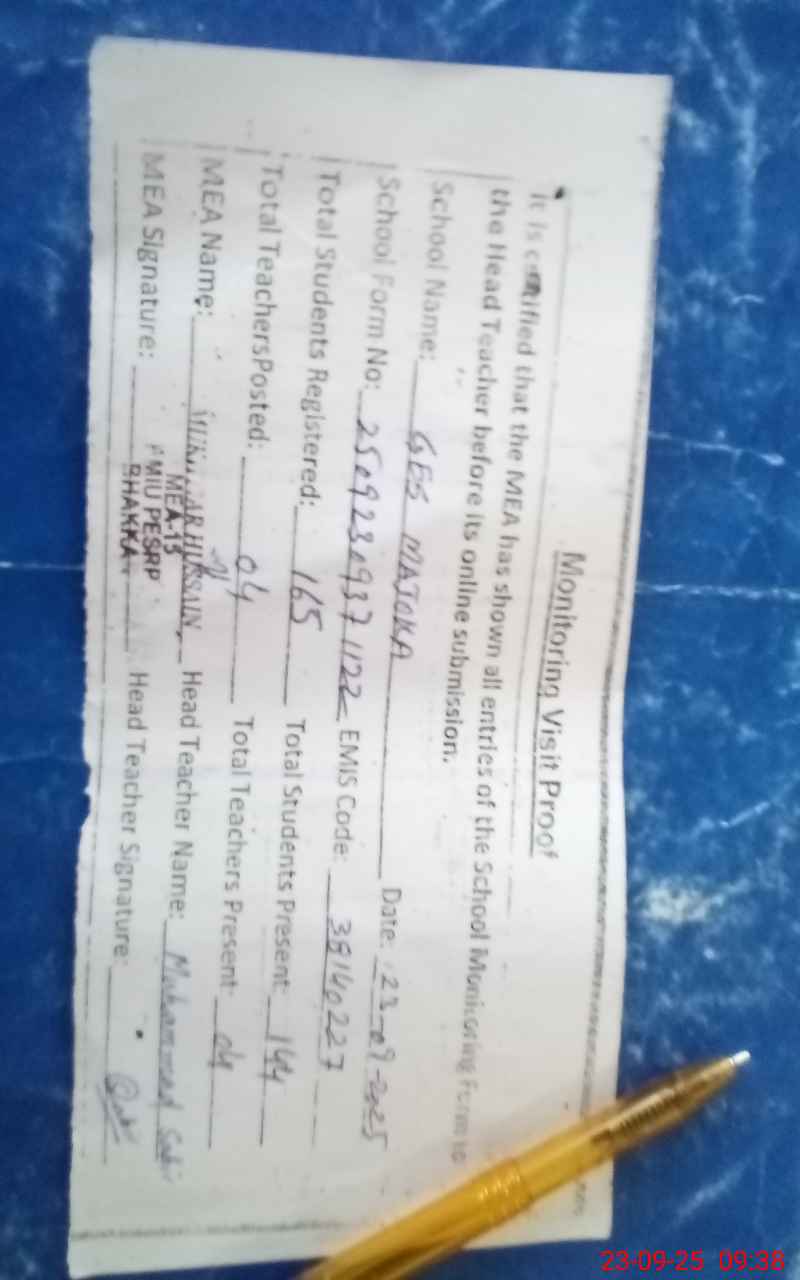 Monitoring Visit Proof
It is certified that the MEA has shown all entries of the School Monitoring Form to
the Head Teacher before its online submission.
School Name: GES MAJOKA Date: 23-09-2025
School Form No: 25092309371122 EMIS Code: 38140227
Total Students Registered: 165 Total Students Present: 144
Total TeachersPosted: 04 Total Teachers Present: 04
MEA Name: HUSSAIN Head Teacher Name: Muhammad
MEA Signature: Head Teacher Signature:
MEA-15
PMIU PESRP
BHAKKAR
23-09-25 09:38